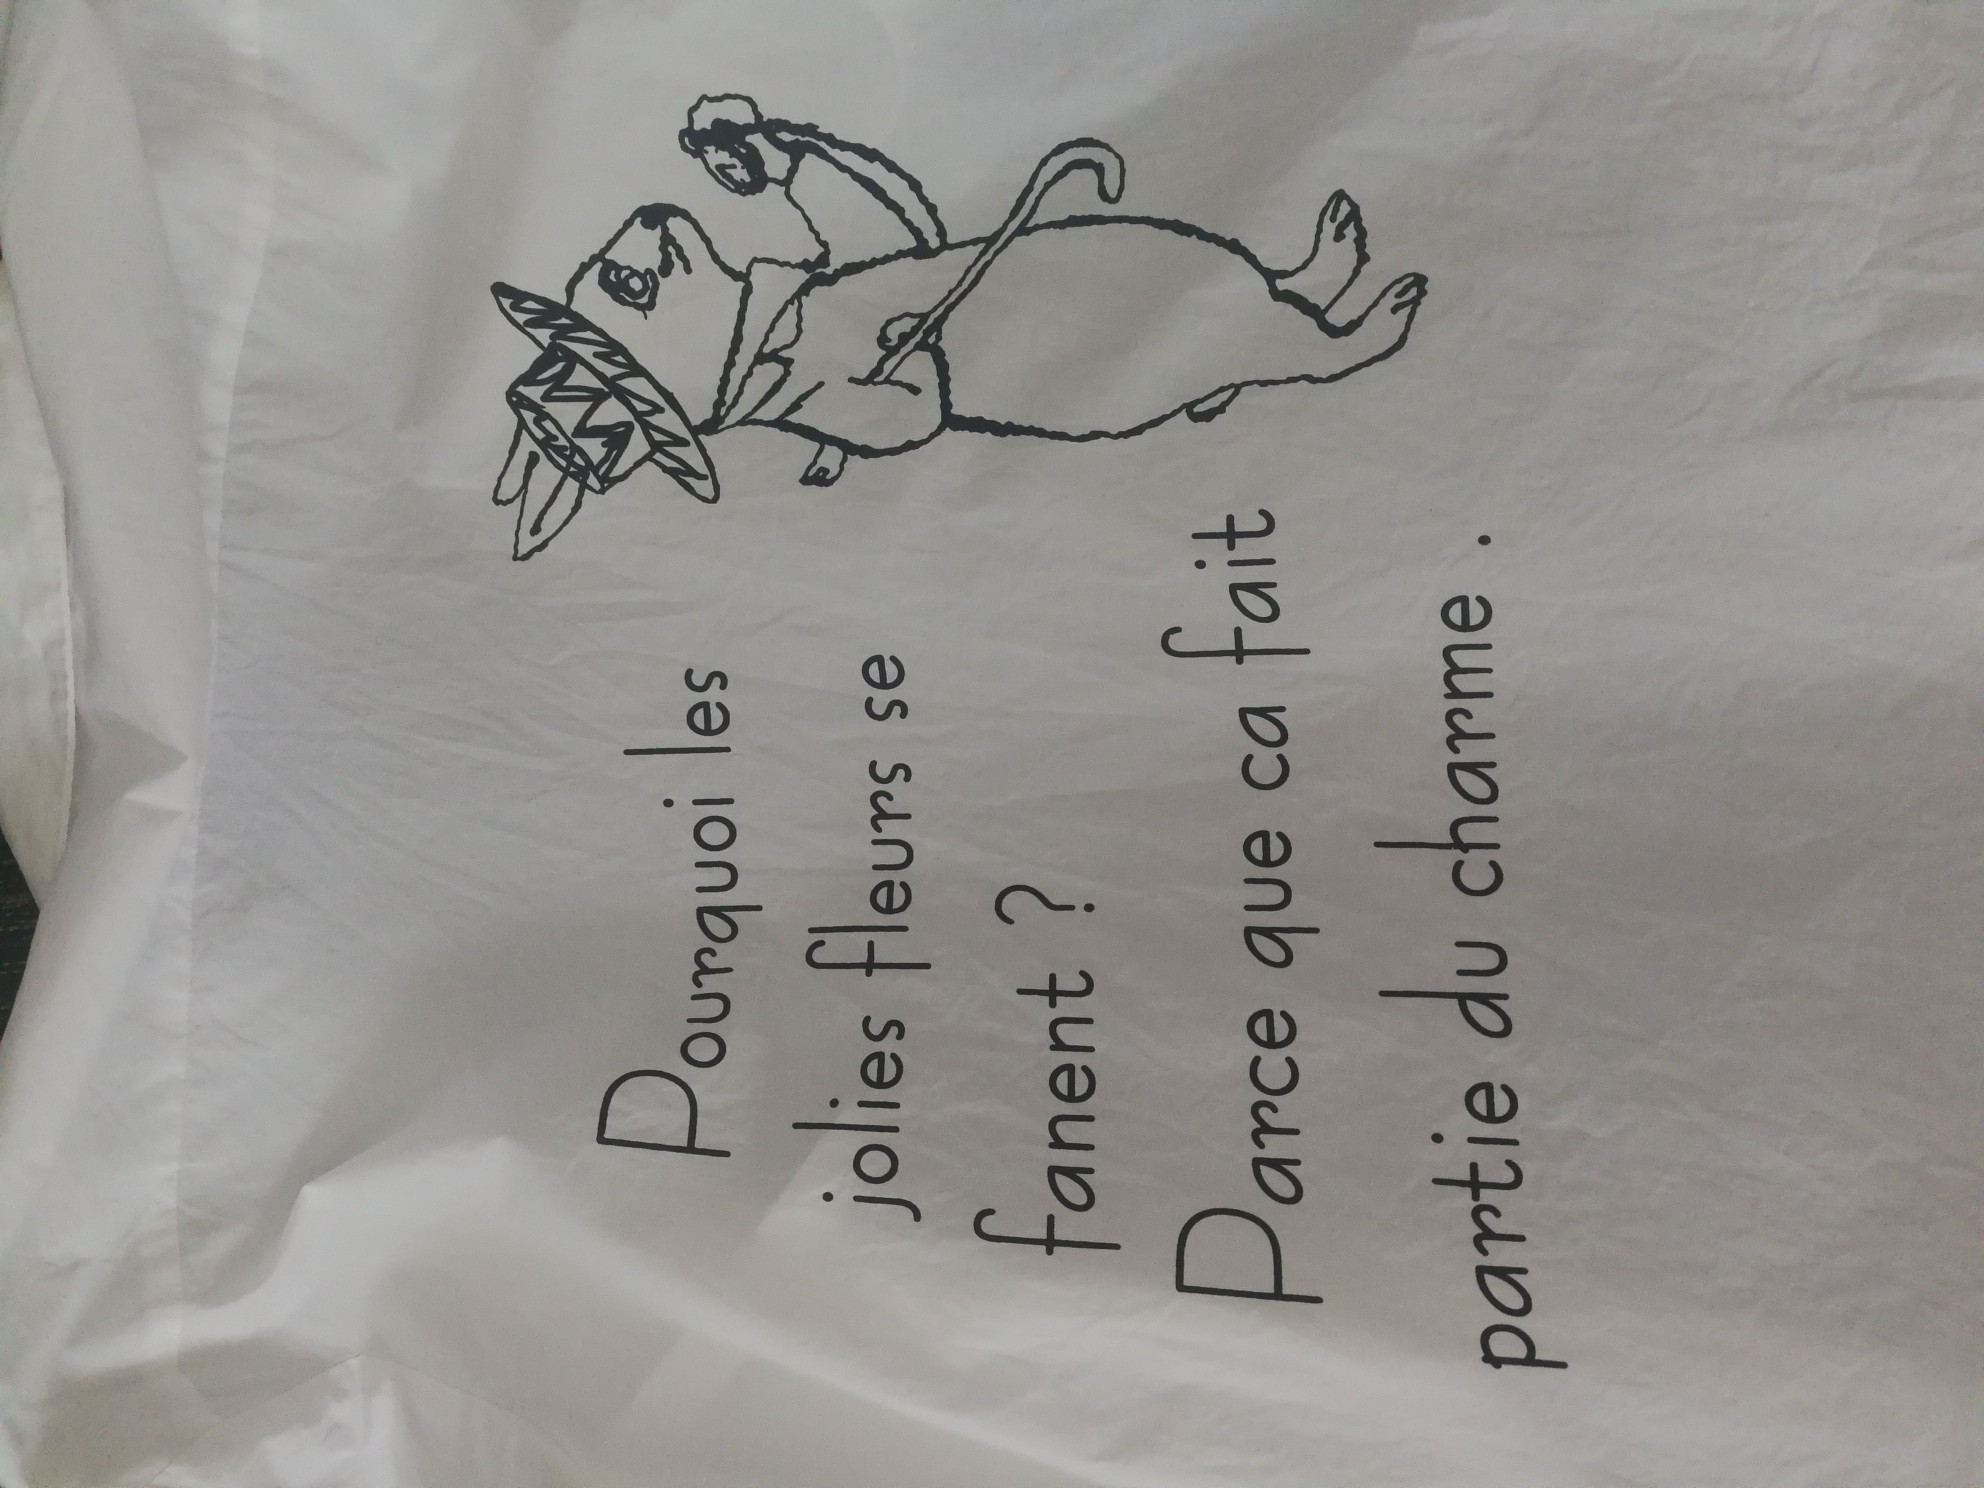 Pourquoi les
jolies fleurs se
fanent ?
Parce que ca fait
partie du charme .